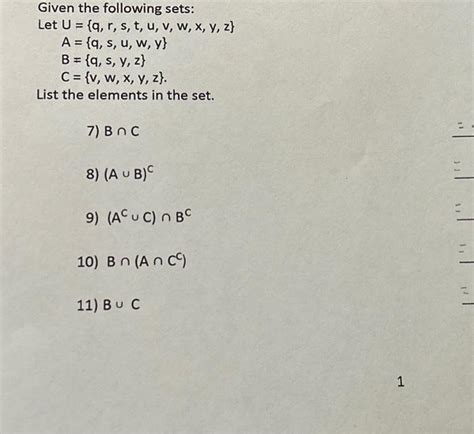 Given the following sets:
Let U = {q, r, s, t, u, v, w, x, y, z}
A = {q, s, u, w, y}
B = {q, s, y, z}
C = {v, w, x, y, z}.
List the elements in the set.
7) B ∩ C
8) (A ∪ B)ᶜ
9) (Aᶜ ∪ C) ∩ Bᶜ
10) B ∩ (A ∩ Cᶜ)
11) B ∪ C
1